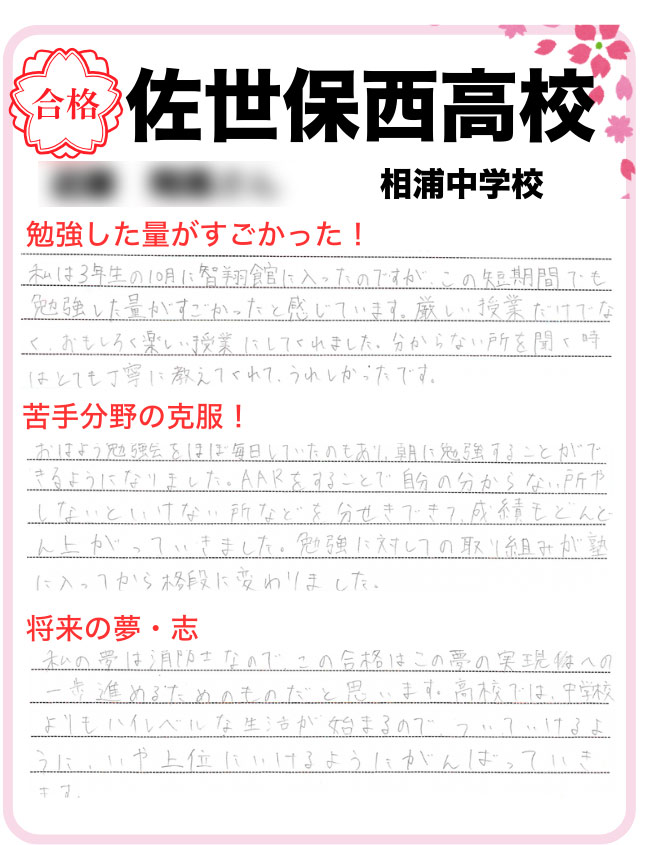 合格
佐世保西高校
相浦中学校
勉強した量がすごかった！
私は3年生の10月に智翔館に入ったのですが、この短期間でも
勉強した量がすごかったと感じています。厳しい授業だけでな
く、おもしろく楽しい授業にしてくれました。分からない所を聞く時
はとても丁寧に教えてくれて、うれしかったです。
苦手分野の克服！
おはよう勉強会をほぼ毎日していたのもあり、朝に勉強することがで
きるようになりました。AARをすることで自分の分からない所や
しないといけない所などを分せきできて、成績もどんど
ん上がっていきました。勉強に対しての取り組みが塾
に入ってから格段に変わりました。
将来の夢・志
私の夢は消防士なので、この合格はこの夢の実現への
一歩進めるためのものだと思います。高校では、中学校
よりもハイレベルな生活が始まるので、ついていけるよ
うに、いや上位にいけるようにがんばっていき
ます。